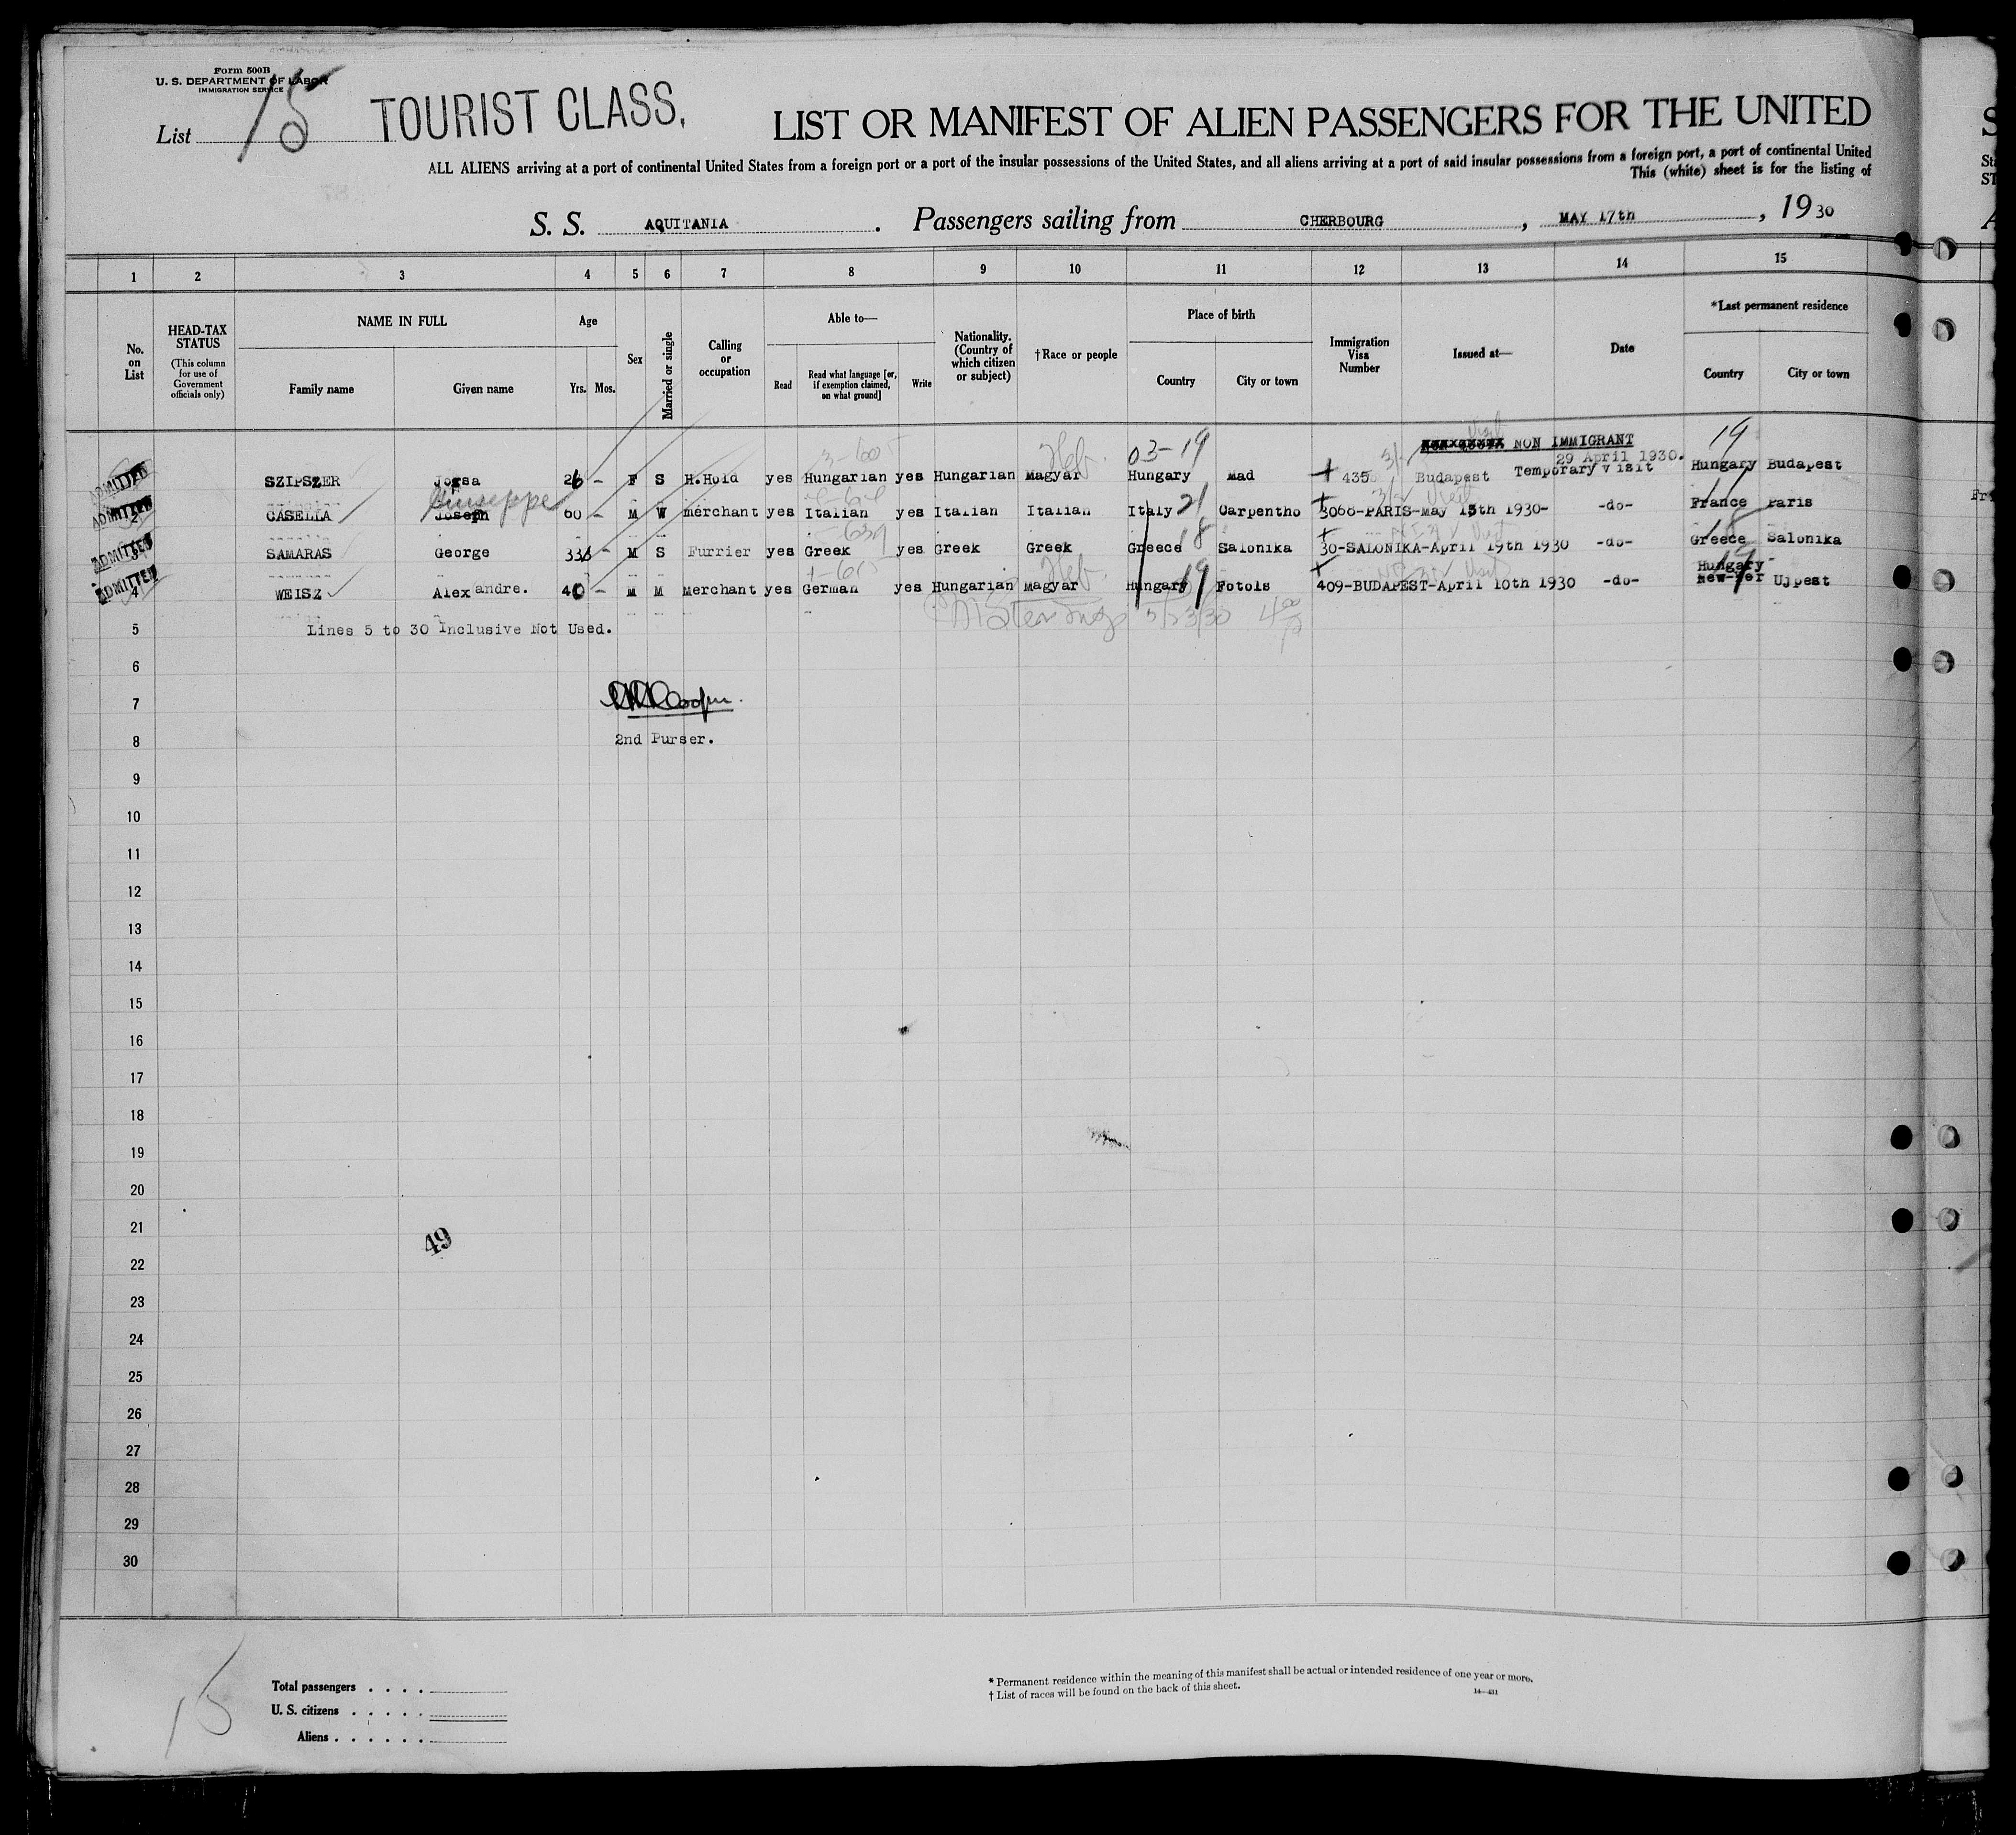 Form 500B
U. S. DEPARTMENT OF LABOR
IMMIGRATION SERVICE
List 15
TOURIST CLASS,
LIST OR MANIFEST OF ALIEN PASSENGERS FOR THE UNITED
ALL ALIENS arriving at a port of continental United States from a foreign port or a port of the insular possessions of the United States, and all aliens arriving at a port of said insular possessions from a foreign port, a port of continental United
This (white) sheet is for the listing of
S. S. AQUITANIA. Passengers sailing from CHERBOURG, MAY 17th, 1930
1 2 3 4 5 6 7 8 9 10 11 12 13 14 15
No. on List
HEAD-TAX STATUS
(This column for use of Government officials only)
NAME IN FULL
Family name
Given name
Age
Yrs. Mos.
Sex
Married or single
Calling or occupation
Able to—
Read
Read what language [or, if exemption claimed, on what ground]
Write
Nationality. (Country of which citizen or subject)
†Race or people
Place of birth
Country
City or town
Immigration Visa Number
Issued at—
Date
*Last permanent residence
Country
City or town
03-19
Visit
NON IMMIGRANT
19
29 April 1930.
ADMITTED SZIPSZER 26 - F S H.Hold yes Hungarian yes Hungarian Magyar Heb. Hungary Mad 435 Budapest Temporary visit Hungary Budapest
Giuseppe
ADMITTED 2 CASELLA Joseph 60 - M W merchant yes Italian yes Italian Italian Italy 21 Carpentho 3066-PARIS-May 15th 1930- -do- France Paris
ADMITTED 3 SAMARAS George 33 - M S Furrier yes Greek yes Greek Greek Greece 18 Salonika 30-SALONIKA-April 19th 1930 -do- Greece Salonika
Hungary
ADMITTED 4 WEISZ Alexandre. 40 - M M Merchant yes German yes Hungarian Magyar Heb. Hungary 19 Fotols 409-BUDAPEST-April 10th 1930 -do- Ujpest
5/23/30
5 Lines 5 to 30 Inclusive Not Used.
6
7
8 2nd Purser.
9
10
11
12
13
14
15
16
17
18
19
20
21
49
22
23
24
25
26
27
28
29
30
15
Total passengers . . . .
U. S. citizens . . . . .
Aliens . . . . . .
* Permanent residence within the meaning of this manifest shall be actual or intended residence of one year or more.
† List of races will be found on the back of this sheet.